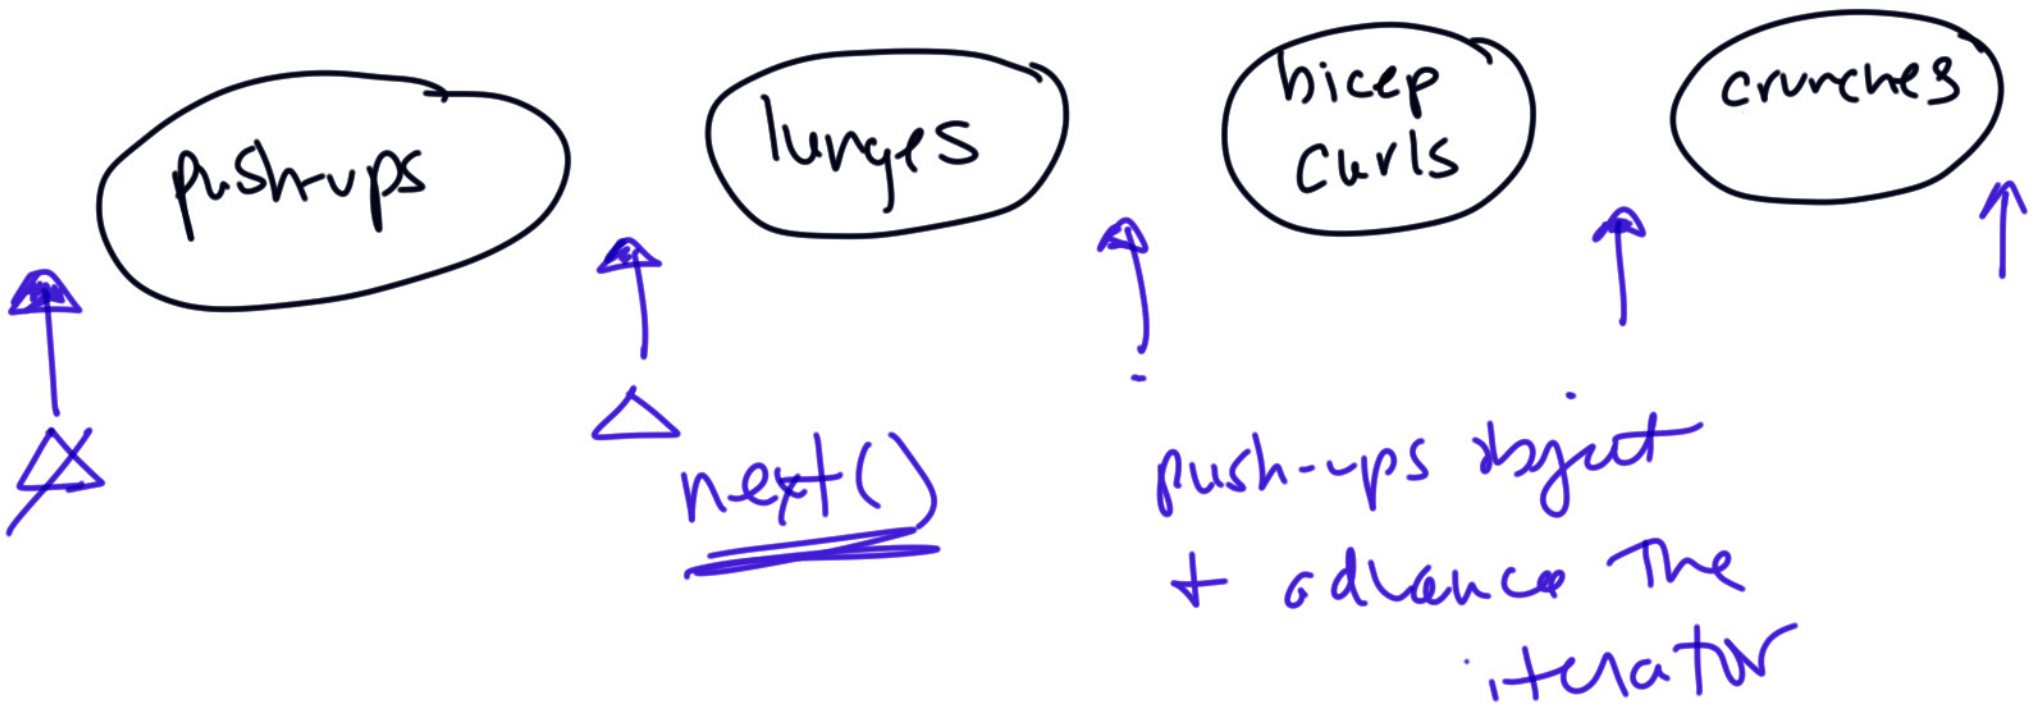 push-ups
lunges
bicep
curls
crunches
next()
push-ups object
+ advance the
iterator